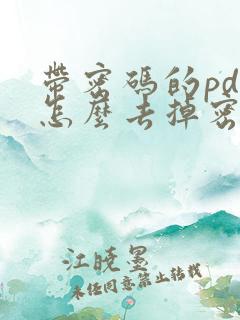 带密码的pd
怎么去掉密
江晓墨
未经同意禁止转载